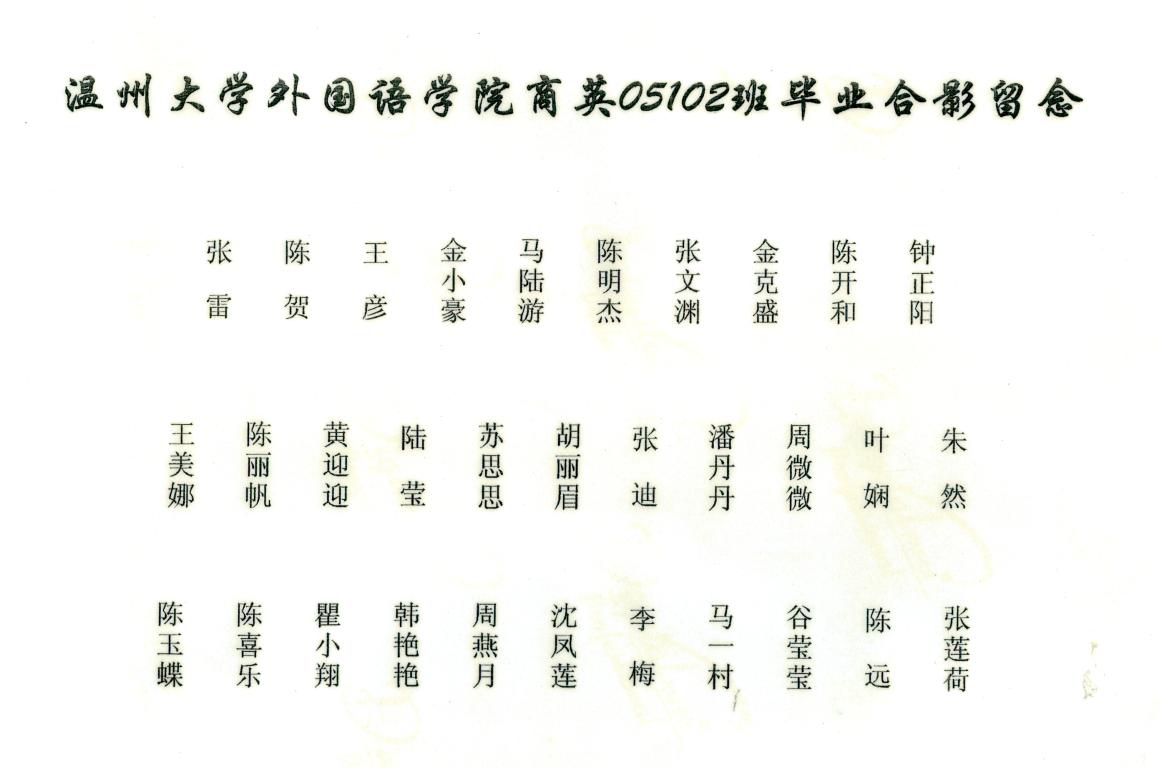 温州大学外国语学院商英05102班毕业合影留念
张雷 陈贺 王彦 金小豪 马陆游 陈明杰 张文渊 金克盛 陈开和 钟正阳
王美娜 陈丽帆 黄迎迎 陆莹 苏思思 胡丽眉 张迪 潘丹丹 周微微 叶娴 朱然
陈玉蝶 陈喜乐 瞿小翔 韩艳艳 周燕月 沈凤莲 李梅 马一村 谷莹莹 陈远 张莲荷